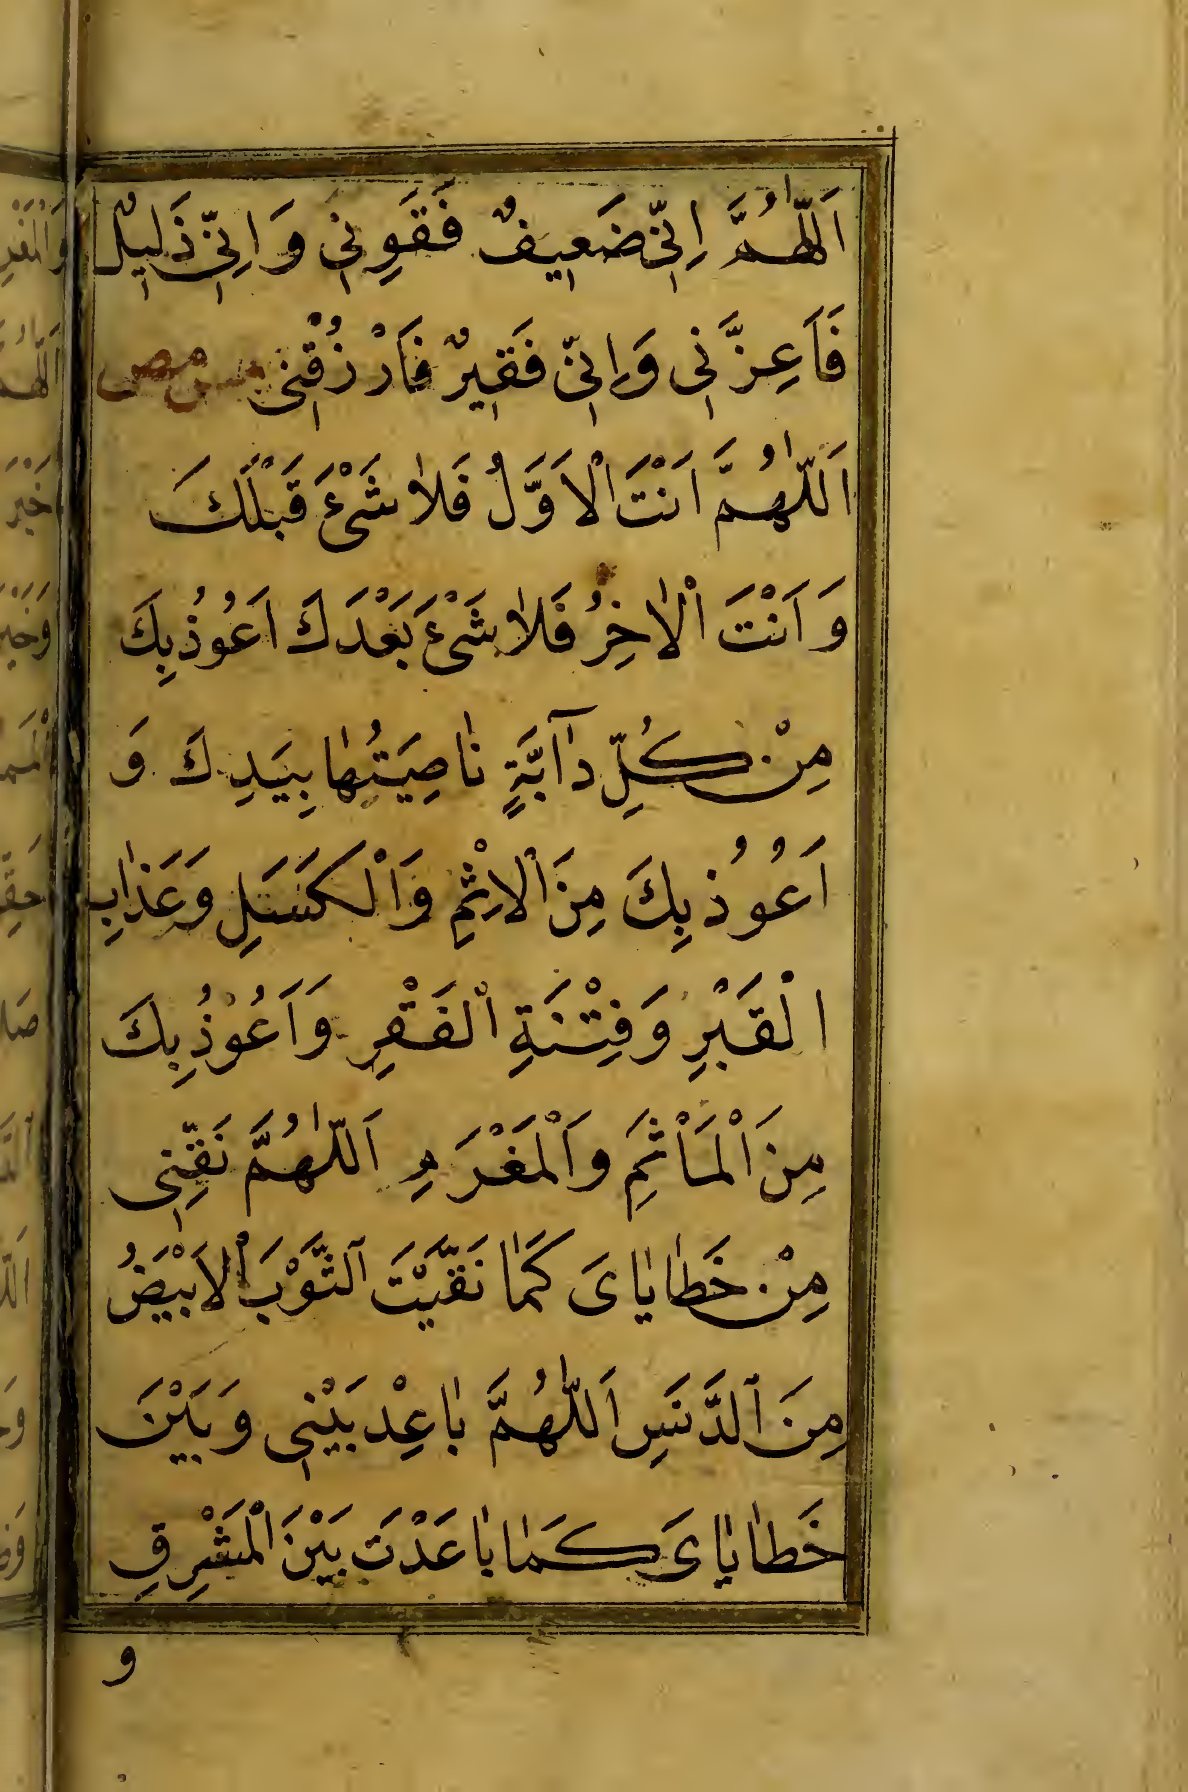 اَللّٰهُمَّ اِنّٖي ضَعٖيفٌ فَقَوِنٖي وَ اِنّٖي ذَلٖيلٌ
فَاَعِزَّنٖي وَاِنّٖي فَقٖيرٌ فَارْزُقْنٖى مس مص
اَللّٰهُمَّ اَنْتَ الْاَوَّلُ فَلاٰ شَيْءَ قَبْلَكَ
وَ اَنْتَ الْاٰخِرُ فَلاٰ شَيْءَ بَعْدَكَ اَعُوُذُ بِكَ
مِنْ كُلِّ دٰآبَّةٍ نٰاصِيَتُهٰا بِيَدِكَ وَ
اَعُوُذُ بِكَ مِنَ الْاِثْمِ وَالْكَسَلِ وَعَذٰابِ
الْقَبْرِ وَفِتْنَةِ الْفَقْرِ وَ اَعُوْذُ بِكَ
مِنَ الْمَأْثَمِ وَالْمَغْرَمِ اَللّٰهُمَّ نَقِّنٖى
مِنْ خَطٰايٰاىَ كَمٰا نَقَّيْتَ الثَّوْبَ الْاَبْيَضُ
مِنَ الدَّنَسِ اَللّٰهُمَّ بٰاعِدْ بَيْنٖى وَ بَيْنَ
خَطٰايٰاىَ كَمٰا بٰاعَدْتَ بَيْنَ الْمَشْرِقِ
و